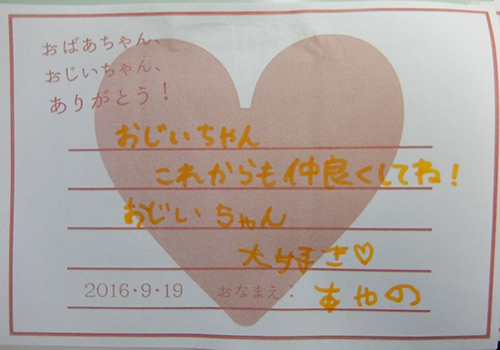 おばあちゃん、
おじいちゃん、
ありがとう！
おじいちゃん
これからも仲良くしてね！
おじいちゃん
大好きさ♡
2016・9・19 おなまえ： あやの